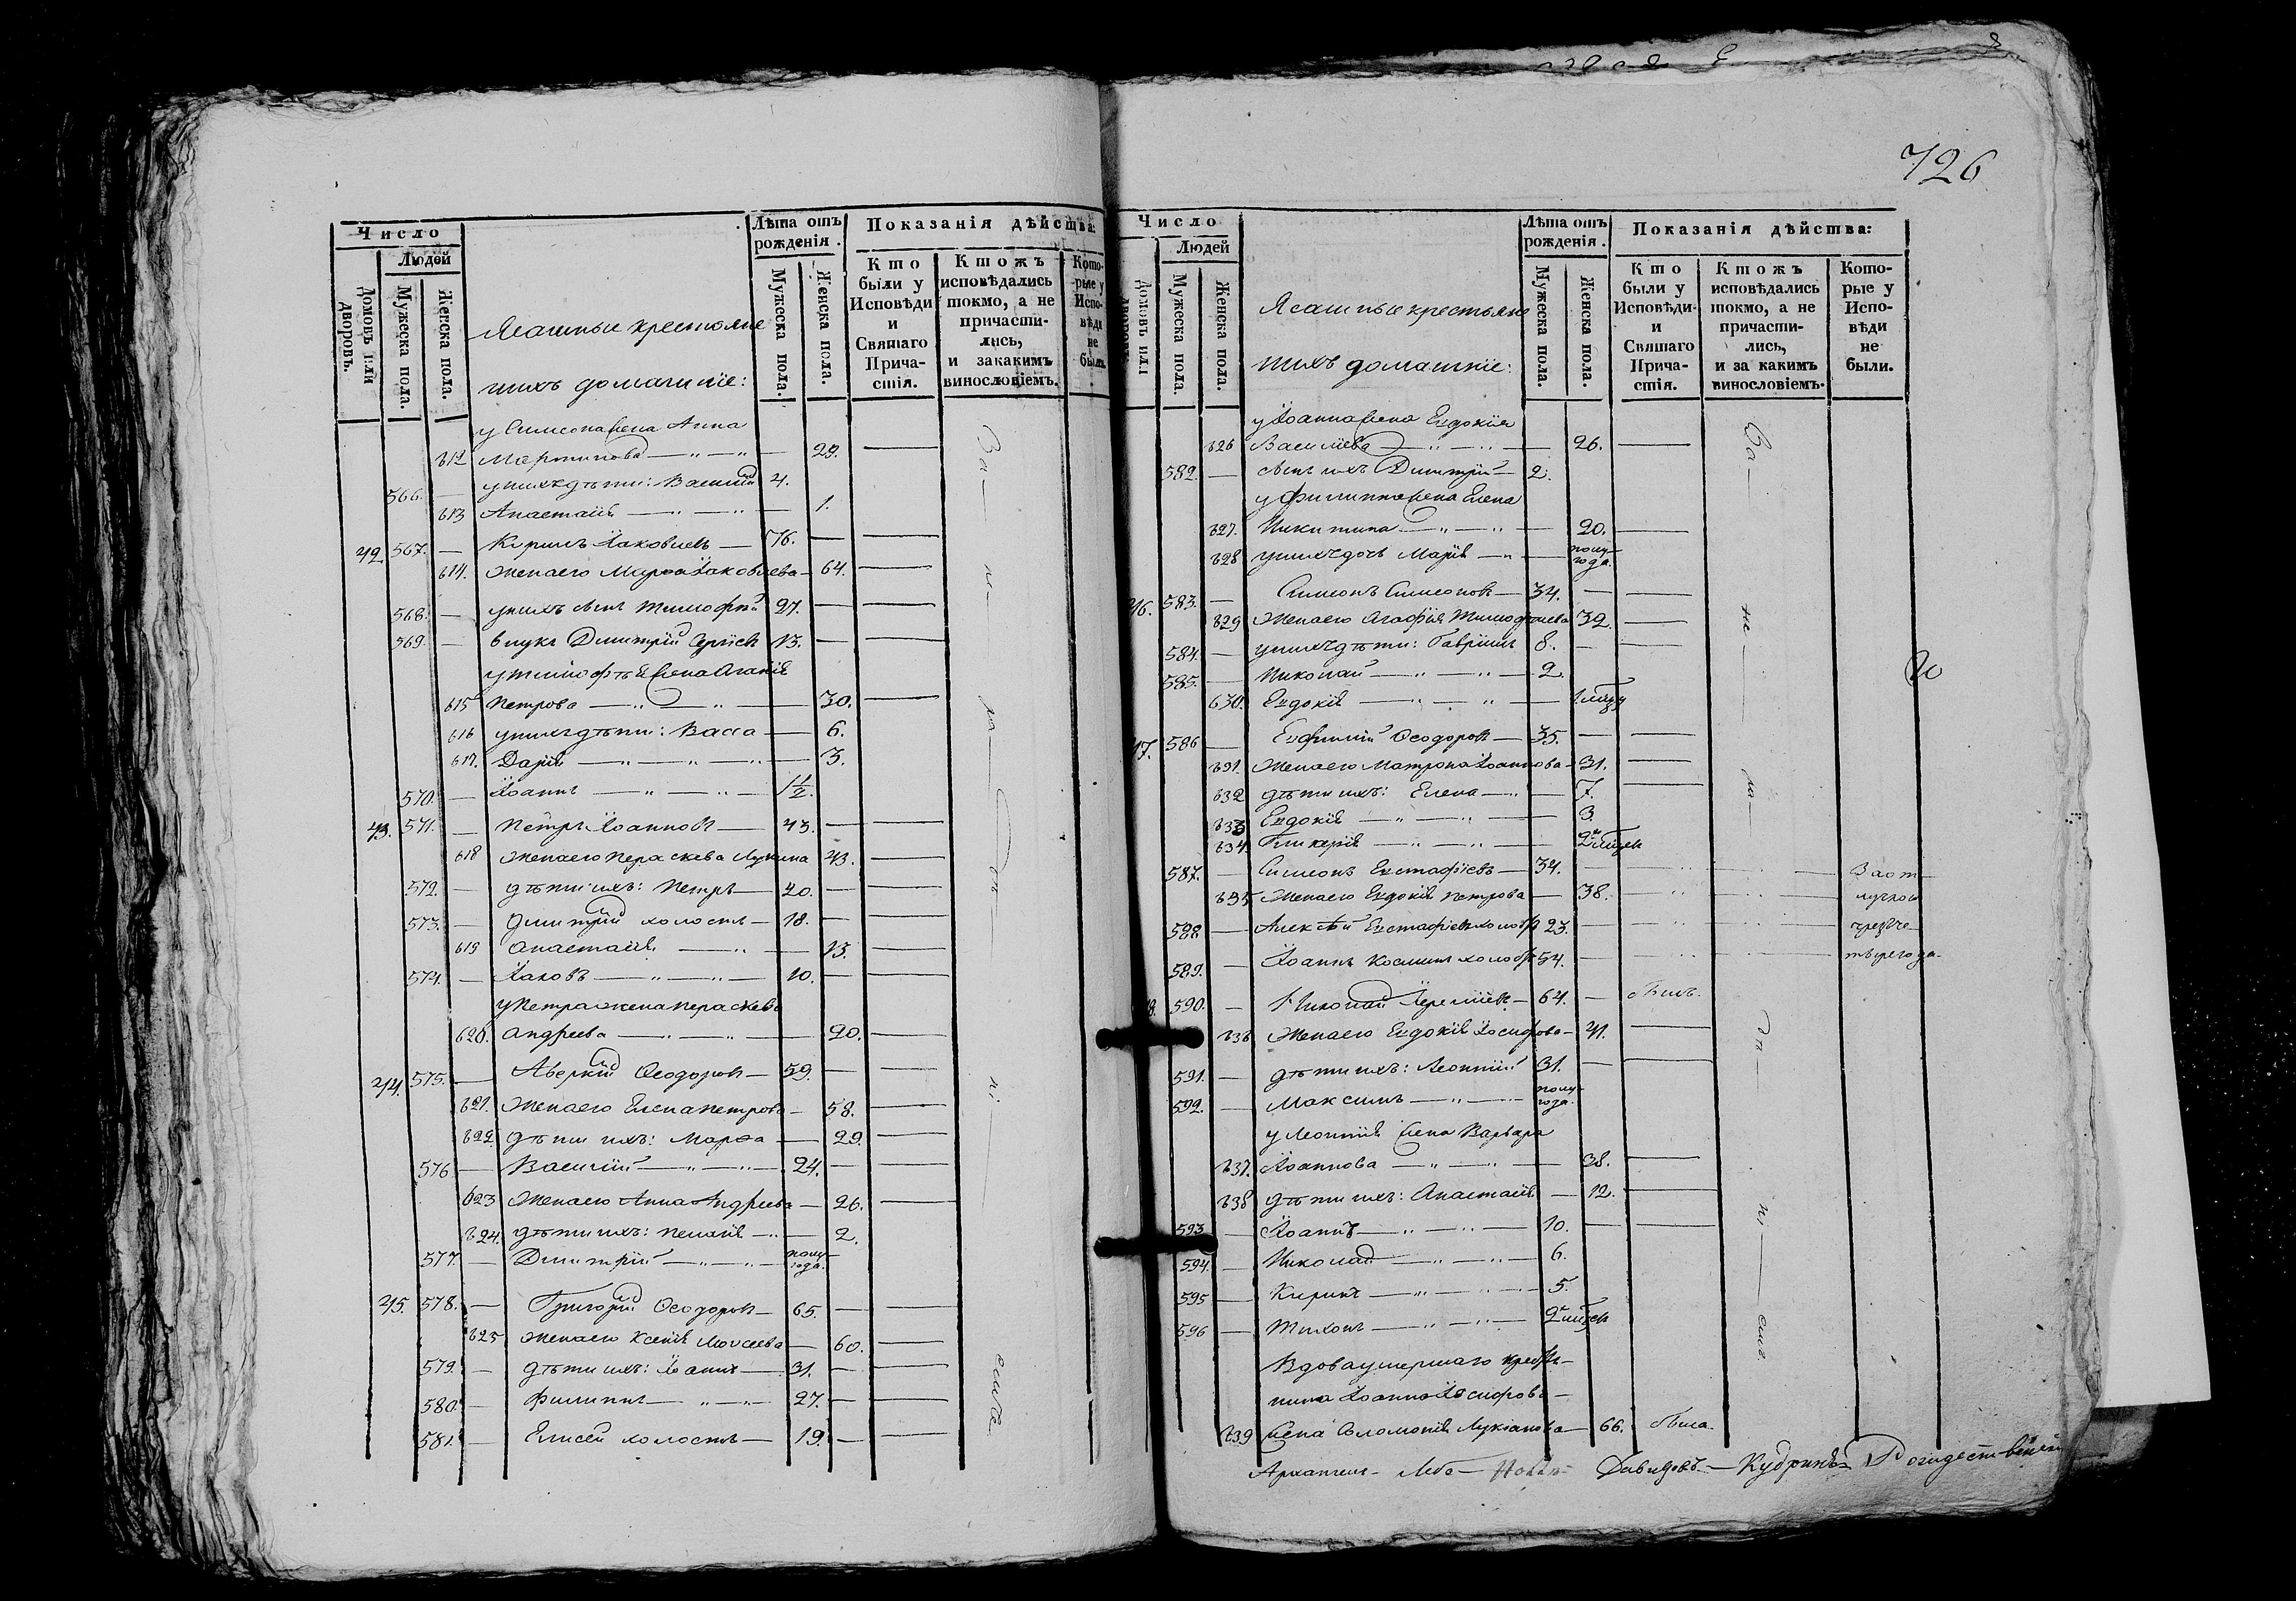 Число
Людей
Домовъ или дворовъ.
Мужеска пола.
Женска пола.
Ясашные крестьяне
и ихъ домашніе:
Лѣта отъ рожденія.
Мужеска пола.
Женска пола.
Показанія дѣйства:
Кто были у Исповѣди и Святаго Причастія.
Ктожъ исповѣдались токмо, а не причастились, и закакимъ винословіемъ.
Которые у Исповѣди не были.
у Симеона жена Анна
612 Мартинова — 29.
566. у нихъ дѣти: Василій 4.
613 Анастасія — 1.
42 567. Кирилъ Іаковлевъ — 76.
614. Жена его Марѳа Іаковлева — 64.
568. у нихъ сынъ Тимофей 27.
569. внукъ Димитрій Сергіевъ 13.
у Тимофѣя жена Агапія
615 Петрова — 30.
616 у нихъ дѣти: Васса — 6.
617. Дарія — 3.
570. Іоаннъ — 1½.
43. 571. Петръ Іоанновъ — 43.
618 Жена его Параскева Лукина 43.
572. дѣти ихъ: Петръ — 20.
573. Димитрій холостъ — 18.
619 Анастасія — 13.
574. Іаковъ — 10.
у Петра жена Параскева
620. Андреева — 20.
44. 575. Аверкій Ѳеодоровъ — 59.
621. Жена его Елена Петрова — 58.
622 дѣти ихъ: Марѳа — 29.
576 Василій — 24.
623 Жена его Анна Андреева — 26.
624. дѣти ихъ: Пелагія — 2.
577. Димитрій — полугода.
45. 578. Григорій Ѳеодоровъ — 65.
625 Жена его Ксенія Моисеева — 60.
579. дѣти ихъ: Іоаннъ — 31.
580. Филиппъ — 27.
581. Елисей холостъ — 19.
726
Число
Людей
Домовъ или дворовъ.
Мужеска пола.
Женска пола.
Ясашные крестьяне
и ихъ домашніе:
Лѣта отъ рожденія.
Мужеска пола.
Женска пола.
Показанія дѣйства:
Кто были у Исповѣди и Святаго Причастія.
Ктожъ исповѣдались токмо, а не причастились, и за какимъ винословіемъ.
Которые у Исповѣди не были.
у Іоанна жена Евдокія
626 Василіева — 26.
582. сынъ ихъ Димитрій — 2.
у Филиппа жена Елена
627. Никитина — 20.
628 у нихъ дочь Марія — полугода.
46. 583. Симеонъ Симеоновъ — 34.
629 Жена его Агафія Тимофеева 32.
584. у нихъ дѣти: Гавріилъ 8.
585. Николай — 2.
630. Евдокія —
47. 586 Евфимій Ѳеодоровъ — 35.
631. Жена его Матрона Іоаннова — 31.
632 дѣти ихъ: Елена — 7.
633 Евдокія — 3.
634. Гликерія —
587. Симеонъ Евстафіевъ — 34. За от-
635 Жена его Евдокія Петрова — 38. лучкою
588 Алексѣй Евстафіевъ 23. чрез
589. Іоаннъ Косминъ 54.
48. 590. Николай Іереміевъ — 64. былъ.
636 Жена его Евдокія Іосифова — 41.
591. дѣти ихъ: Леонтій 31.
592. Максимъ — полугода.
у Леонтія жена Варвара
637. Іоаннова — 38.
638 дѣти ихъ: Анастасія — 12.
593 Іоаннъ — 10.
594. Николай — 6.
595 Кирикъ — 5.
596 Тихонъ —
Вдова умершаго крестья-
нина Іоанна Іосифова
639 жена Соломонія Лукіанова — 66. была.
Давидовъ — Кудринъ Рождественскій